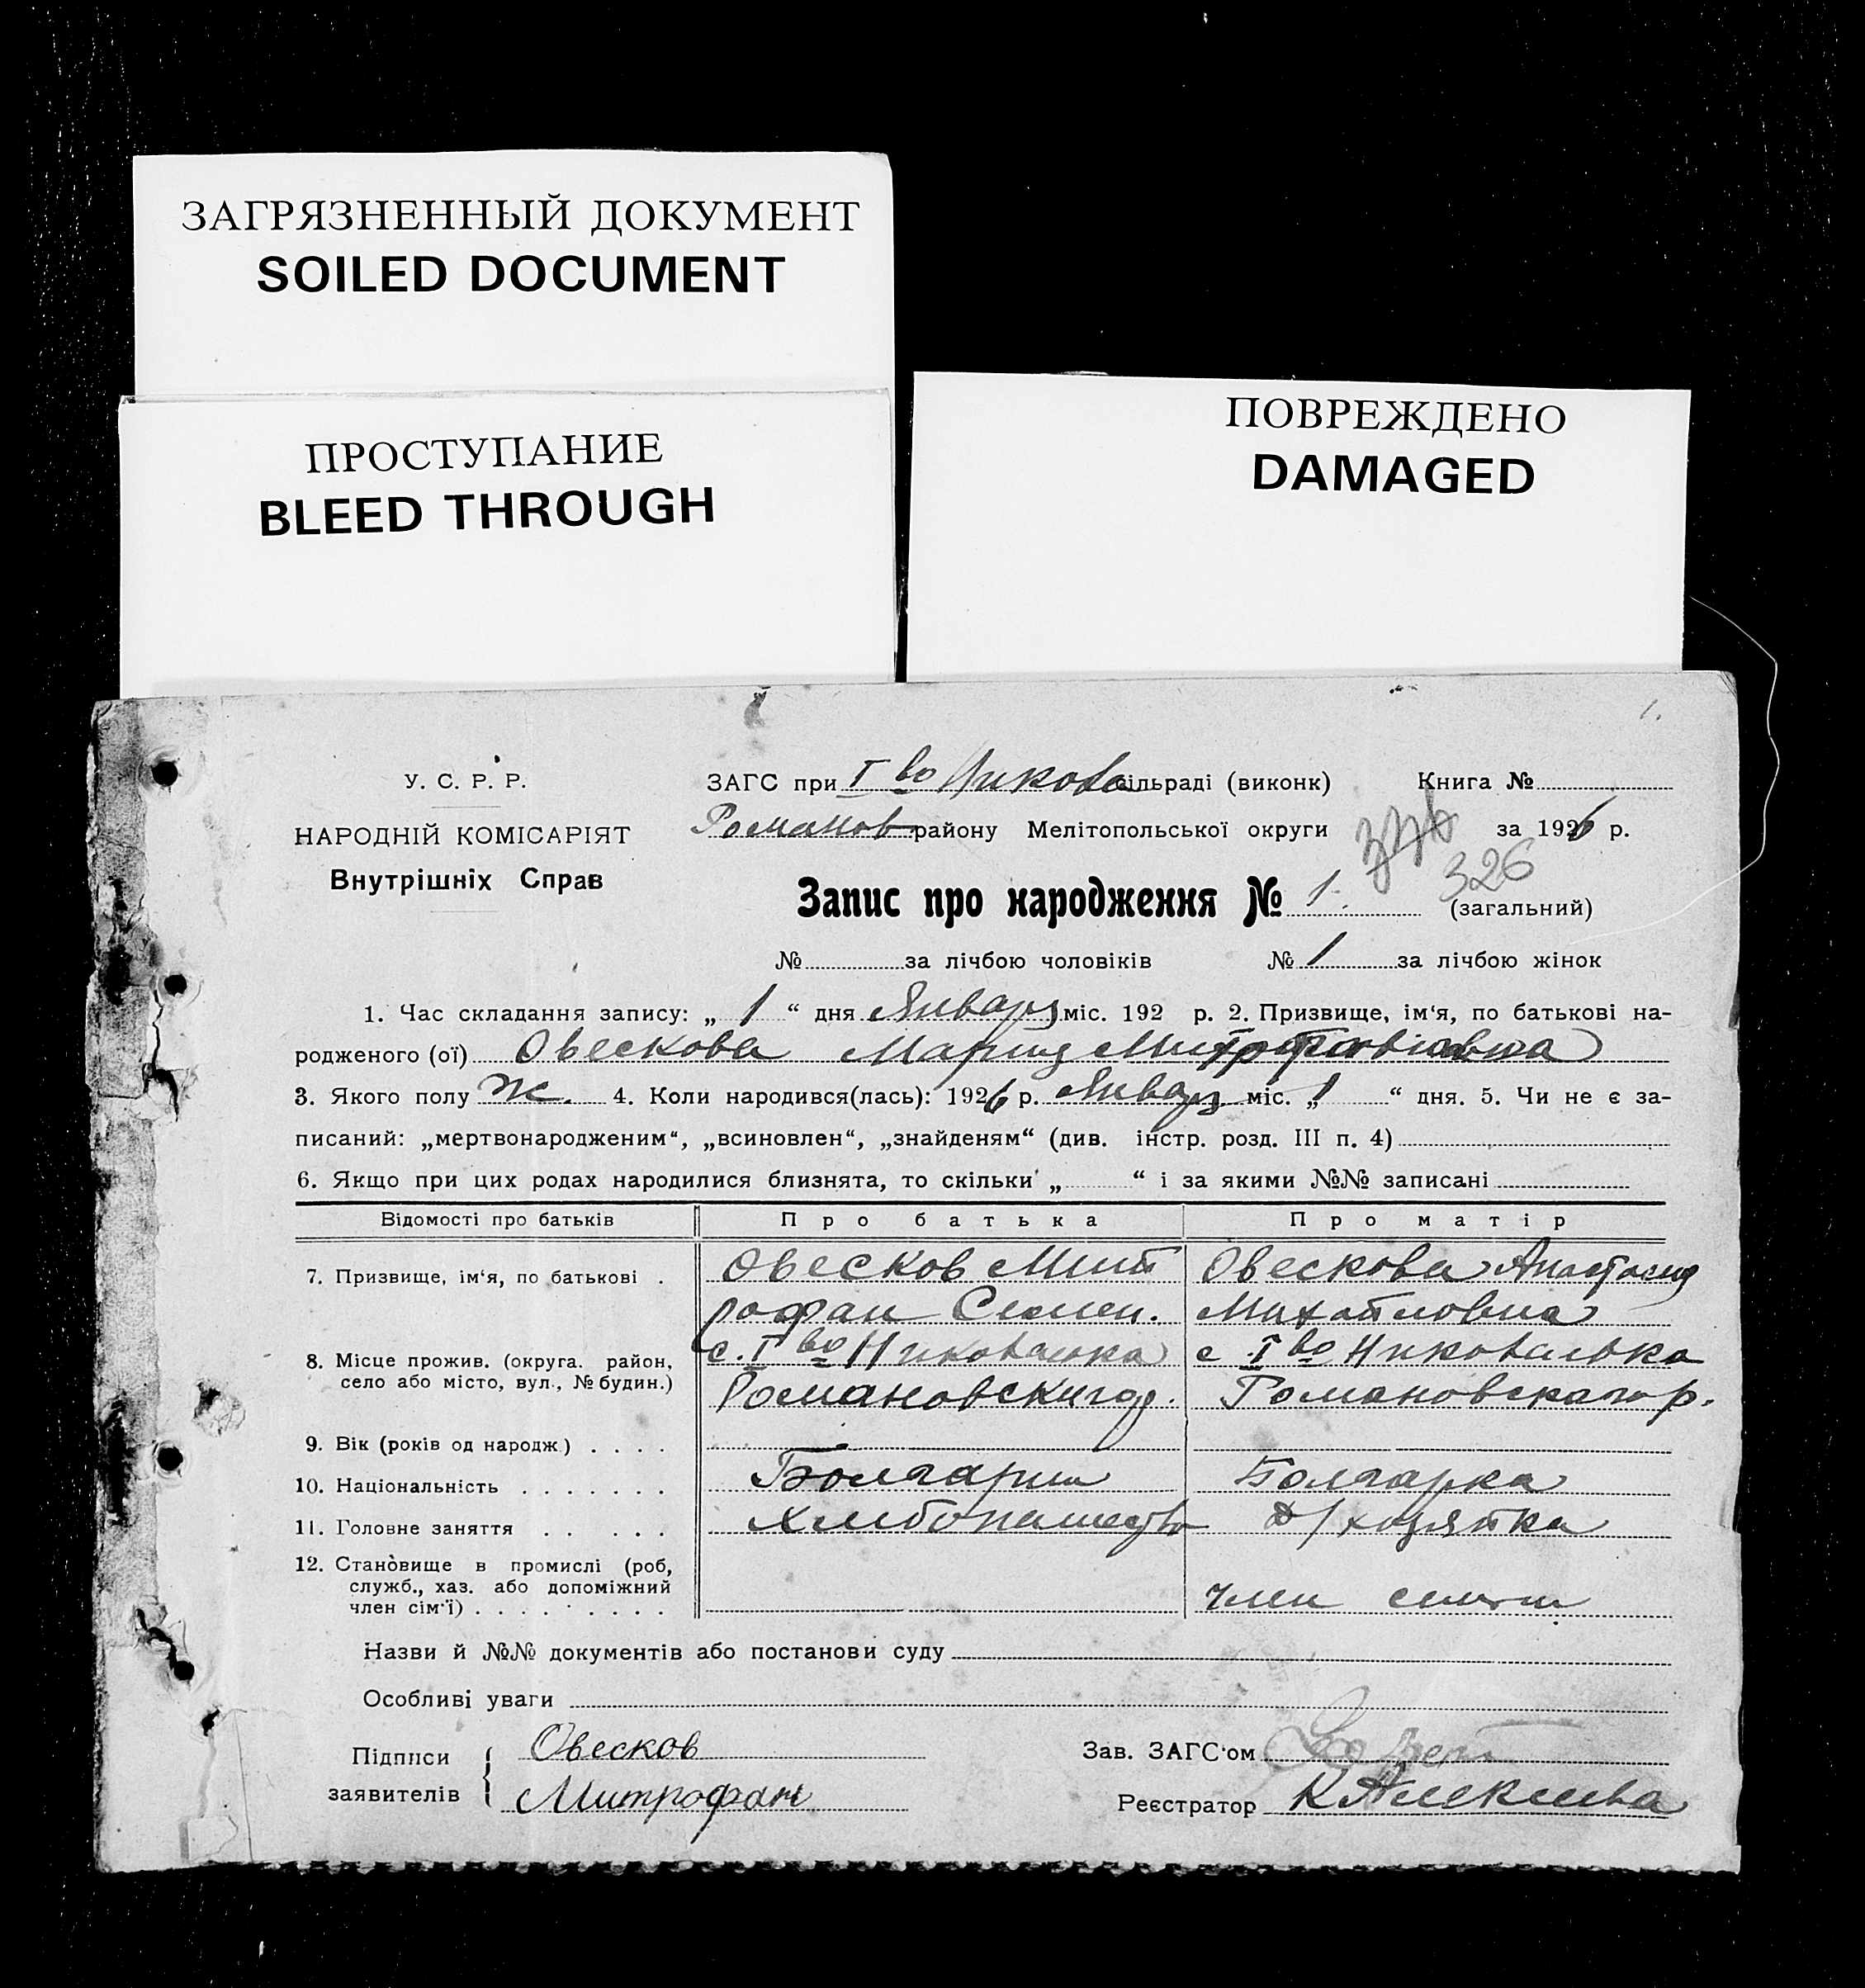 ЗАГРЯЗНЕННЫЙ ДОКУМЕНТ
SOILED DOCUMENT
ПРОСТУПАНИЕ
BLEED THROUGH
ПОВРЕЖДЕНО
DAMAGED
1.
У. С. Р. Р.
НАРОДНІЙ КОМІСАРІЯТ
Внутрішніх Справ
ЗАГС при I во Никова сільраді (виконк) Книга №
Романов району Мелітопольської округи за 1926 р.
326
Запис про народження № 1. (загальний)
№ за лічбою чоловіків № 1 за лічбою жінок
1. Час складання запису: „ 1 “ дня Января міс. 192 р. 2. Призвище, ім‘я, по батькові на-
родженого (ої) Овескова Мария
3. Якого полу ж. 4. Коли народився(лась): 1926 р. Января міс. „1 “ дня. 5. Чи не є за-
писаний: „мертвонародженим“, „всиновлен“, „знайденям“ (див. інстр. розд. III п. 4)
6. Якщо при цих родах народилися близнята, то скільки „ “ і за якими №№ записані
Відомості про батьків Про батька Про матір
7. Призвище, ім‘я, по батькові . Овесков Мит Овескова Анастасия
рофан Семен. Михайловна
8. Місце прожив. (округа. район, с. I во Никовалька с I во Никовалька
село або місто, вул., № будин.) Романовскаго р.
9. Вік (років од народж.) . . . .
10. Національність . . . . . . . Болгарин Болгарка
11. Головне заняття . . . . . Хлебопашество д/хозяйка
12. Становище в промислі (роб,
служб., хаз. або допоміжний
член сім‘ї) . . . . . . . . . член семьи
Назви й №№ документів або постанови суду
Особливі уваги
Підписи Овесков Зав. ЗАГС‘ом
заявителів Митрофан Реєстратор К Алексеева